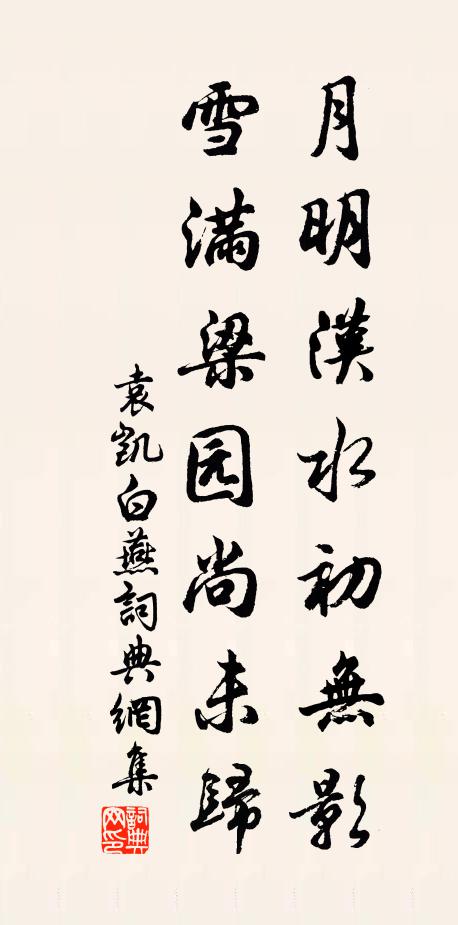 月明漢水初無影
雪滿梁园尚未歸
袁凱白燕詞典網集
詞典網印